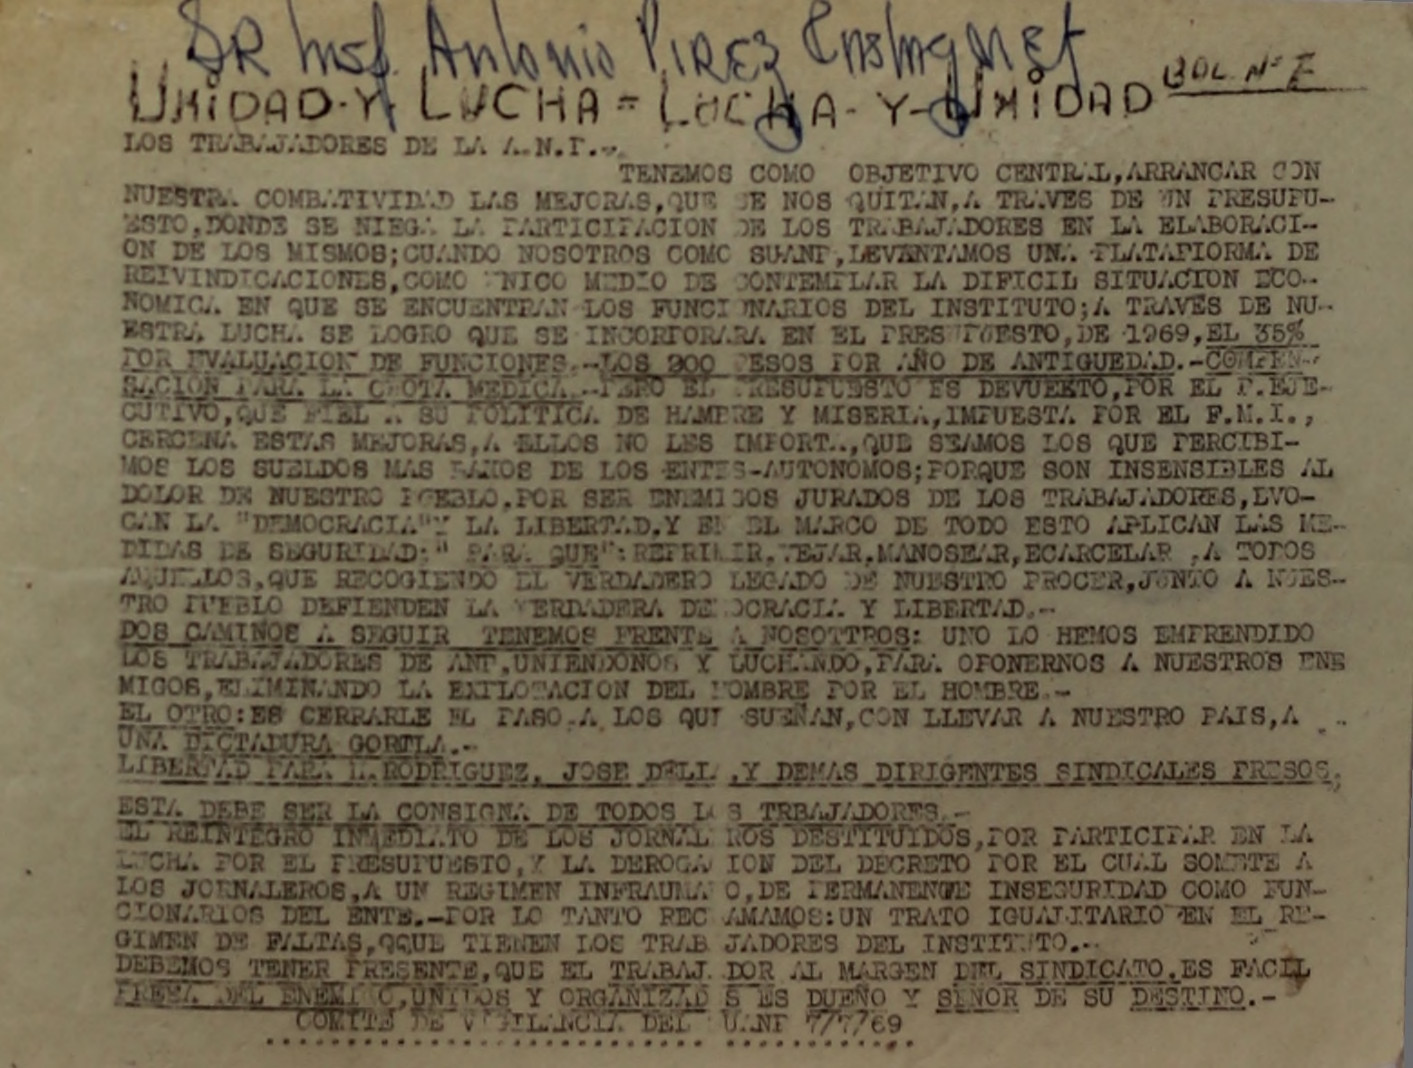 SR Insp. Antonio PIREZ
UNIDAD-Y LUCHA = LUCHA-Y-UNIDAD BOL Nº
LOS TRABAJADORES DE LA A.N.P.-
TENEMOS COMO OBJETIVO CENTRAL,ARRANCAR CON
NUESTRA COMBATIVIDAD LAS MEJORAS,QUE SE NOS QUITAN,A TRAVES DE UN PRESUPU-
ESTO,DONDE SE NIEGA LA PARTICIPACION DE LOS TRABAJADORES EN LA ELABORACI-
ON DE LOS MISMOS;CUANDO NOSOTROS COMO SUANP,LEVANTAMOS UNA PLATAFIORMA DE
REIVINDICACIONES,COMO UNICO MEDIO DE CONTEMPLAR LA DIFICIL SITUACION ECO-
NOMICA EN QUE SE ENCUENTRAN LOS FUNCIONARIOS DEL INSTITUTO;A TRAVES DE NU-
ESTRA LUCHA SE LOGRO QUE SE INCORPORARA EN EL PRESUPUESTO,DE 1969,EL 35%
POR EVALUACION DE FUNCIONES.-LOS 200 PESOS POR AÑO DE ANTIGUEDAD.-COMPEN-
SACION PARA LA CUOTA MEDICA.-PERO EL PRESUPUESTO ES DEVUELTO,POR EL P.EJE-
CUTIVO,QUE FIEL A SU POLITICA DE HAMBRE Y MISERIA,IMPUESTA POR EL F.M.I.,
CERCENA ESTAS MEJORAS,A ELLOS NO LES IMPORTA,QUE SEAMOS LOS QUE PERCIBI-
MOS LOS SUELDOS MAS BAJOS DE LOS ENTES-AUTONOMOS;PORQUE SON INSENSIBLES AL
DOLOR DE NUESTRO PUEBLO,POR SER ENEMIGOS JURADOS DE LOS TRABAJADORES,EVO-
CAN LA "DEMOCRACIA"Y LA LIBERTAD.Y EN EL MARCO DE TODO ESTO APLICAN LAS ME-
DIDAS DE SEGURIDAD:" PARA QUE":REPRIMIR,VEJAR,MANOSEAR,ECARCELAR ,A TODOS
AQUELLOS,QUE RECOGIENDO EL VERDADERO LEGADO DE NUESTRO PROCER,JUNTO A NUES-
TRO PUEBLO DEFIENDEN LA VERDADERA DEMOCRACIA Y LIBERTAD.-
DOS CAMINOS A SEGUIR TENEMOS FRENTE A NOSOTTROS: UNO LO HEMOS EMPRENDIDO
LOS TRABAJADORES DE ANP,UNIENDONOS Y LUCHANDO,PARA OPONERNOS A NUESTROS ENE
MIGOS,ELIMINANDO LA EXPLOTACION DEL HOMBRE POR EL HOMBRE.-
EL OTRO:ES CERRARLE EL PASO A LOS QUE SUEÑAN,CON LLEVAR A NUESTRO PAIS,A
UNA DICTADURA GORILA.-
LIBERTAD PARA L.RODRIGUEZ, JOSE DELL ,Y DEMAS DIRIGENTES SINDICALES PRESOS,
ESTA DEBE SER LA CONSIGNA DE TODOS LOS TRBAJADORES.-
EL REINTEGRO INMEDIATO DE LOS JORNALEROS DESTITUIDOS,POR PARTICIPAR EN LA
LUCHA POR EL PRESUPUESTO,Y LA DEROGACION DEL DECRETO POR EL CUAL SOMETE A
LOS JORNALEROS,A UN REGIMEN INFRAUMANO,DE PERMANENTE INSEGURIDAD COMO FUN-
CIONARIOS DEL ENTE.-POR LO TANTO RECLAMAMOS:UN TRATO IGUALITARIO EN EL RE-
GIMEN DE FALTAS,QQUE TIENEN LOS TRABAJADORES DEL INSTITUTO.-
DEBEMOS TENER PRESENTE,QUE EL TRABAJADOR AL MARGEN DEL SINDICATO,ES FACIL
PRESA DEL ENEMIGO,UNIDOS Y ORGANIZADOS ES DUEÑO Y SEÑOR DE SU DESTINO.-
COMITE DE VIGILANCIA DEL SUANP 7/7/69